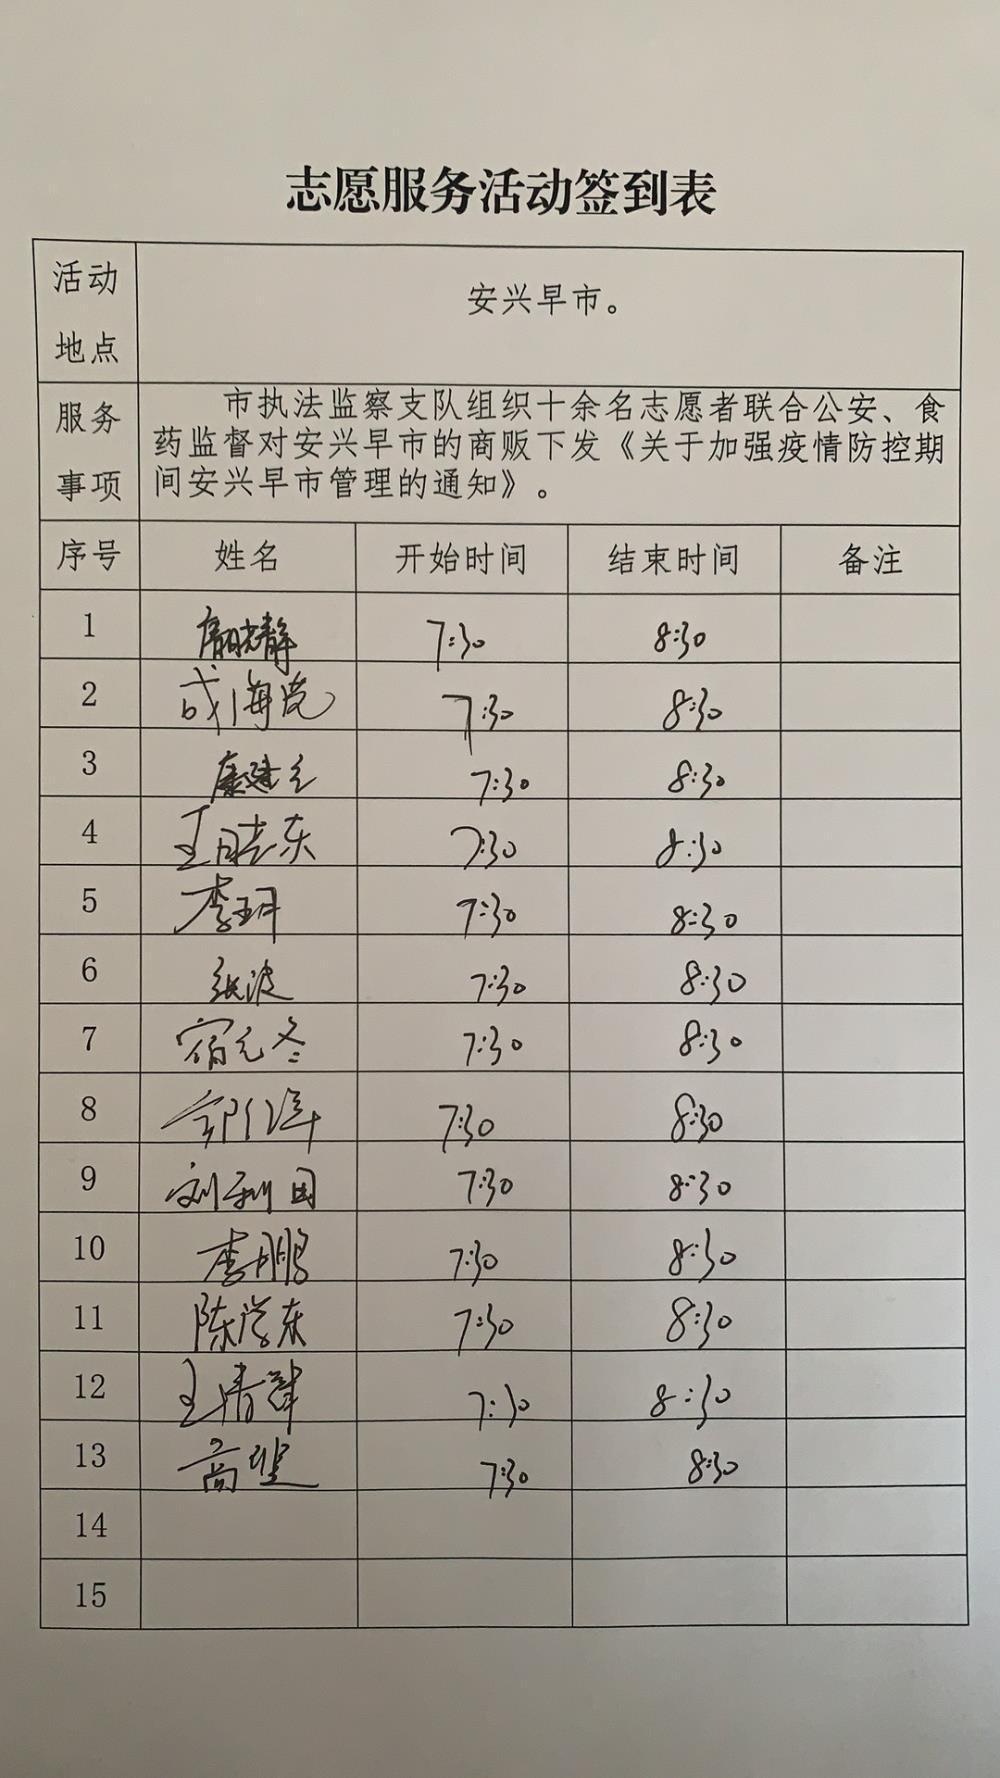 志愿服务活动签到表
活动地点 安兴早市。
服务事项 市执法监察支队组织十余名志愿者联合公安、食
药监督对安兴早市的商贩下发《关于加强疫情防控期
间安兴早市管理的通知》。
序号 姓名 开始时间 结束时间 备注
1 7:30 8:30
2 7:30 8:30
3 7:30 8:30
4 7:30 8:30
5 李玥 7:30 8:30
6 张波 7:30 8:30
7 宿元冬 7:30 8:30
8 7:30 8:30
9 刘利国 7:30 8:30
10 李鹏 7:30 8:30
11 陈学东 7:30 8:30
12 王清群 7:30 8:30
13 高堃 7:30 8:30
14
15